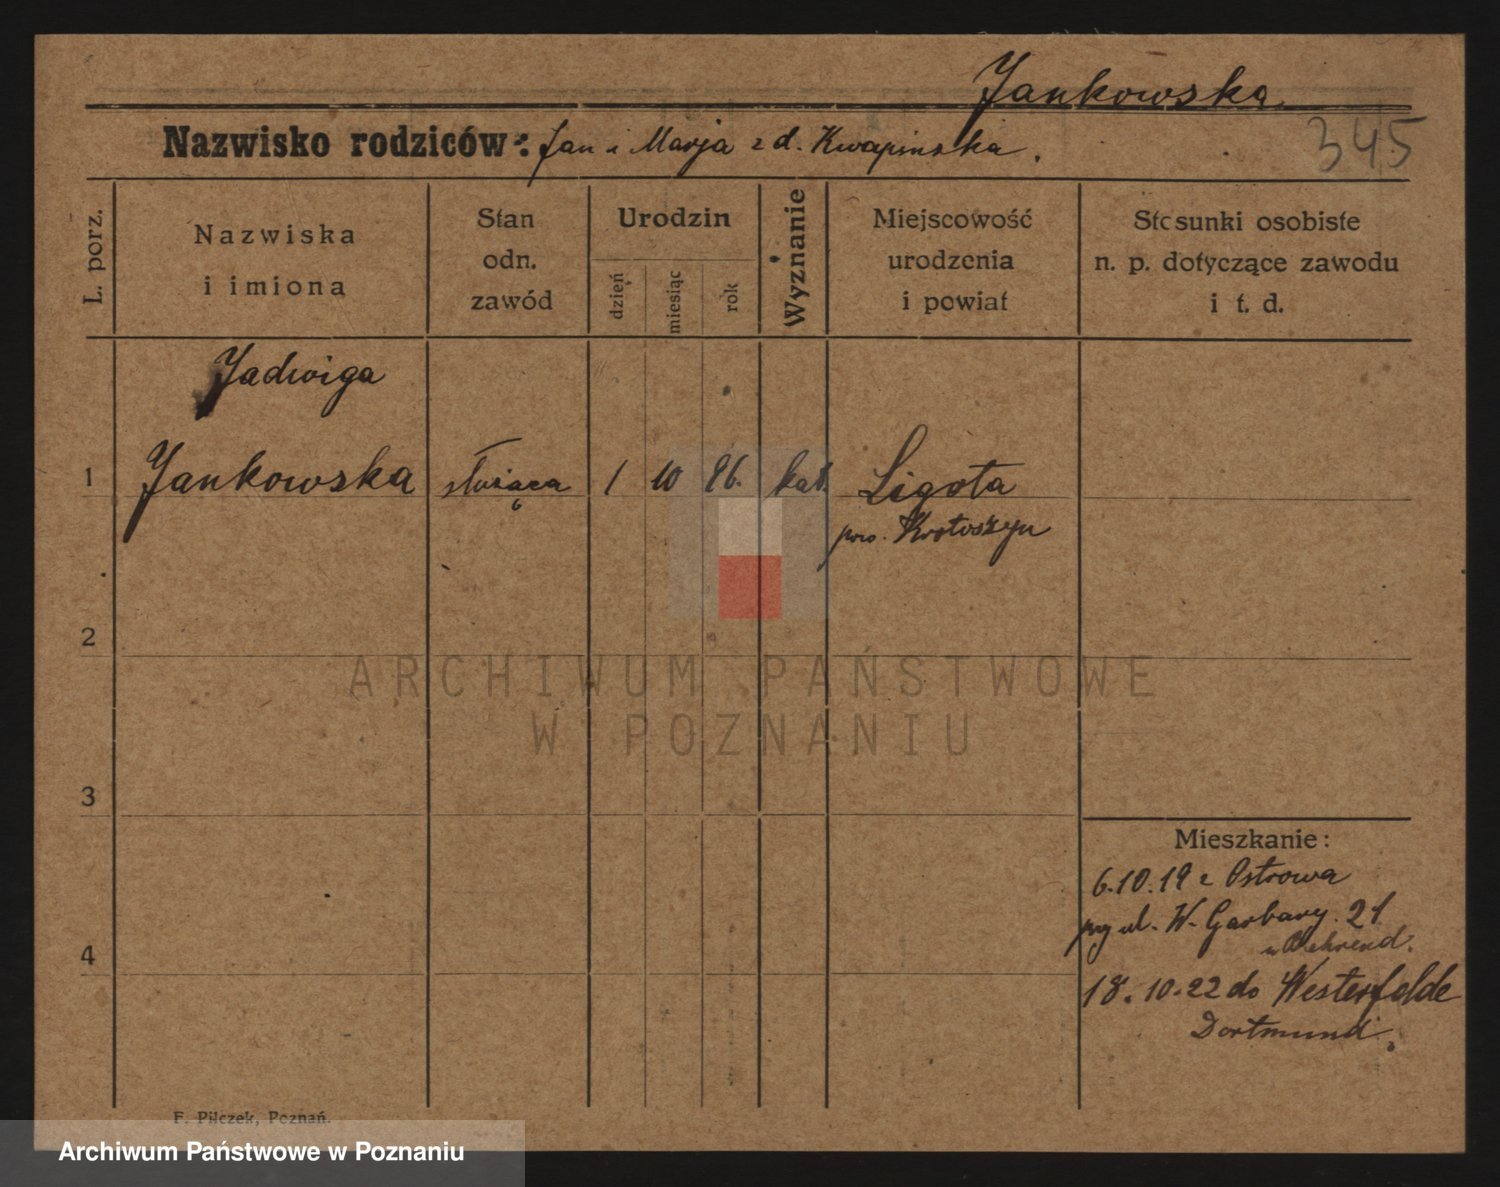 Jankowska
Nazwisko rodziców: Jan i Marja z d. Kwapinska.
345
L. porz.
Nazwiska
i imiona
Stan
odn.
zawód
Urodzin
dzień
miesiąc
rok
Wyznanie
Miejscowość
urodzenia
i powiat
Stosunki osobiste
n. p. dotyczące zawodu
i t. d.
Jadwiga
1 Jankowska służąca 1 10 86. kat. Ligota
pow. Krotoszyn
2
ARCHIWUM PAŃSTWOWE
W POZNANIU
3
Mieszkanie:
6.10.19 z Ostrowa
przy ul. W. Garbary. 21
u Behrend.
4
18.10.22 do Westerfelde
Dortmund.
F. Pilczek, Poznań.
Archiwum Państwowe w Poznaniu